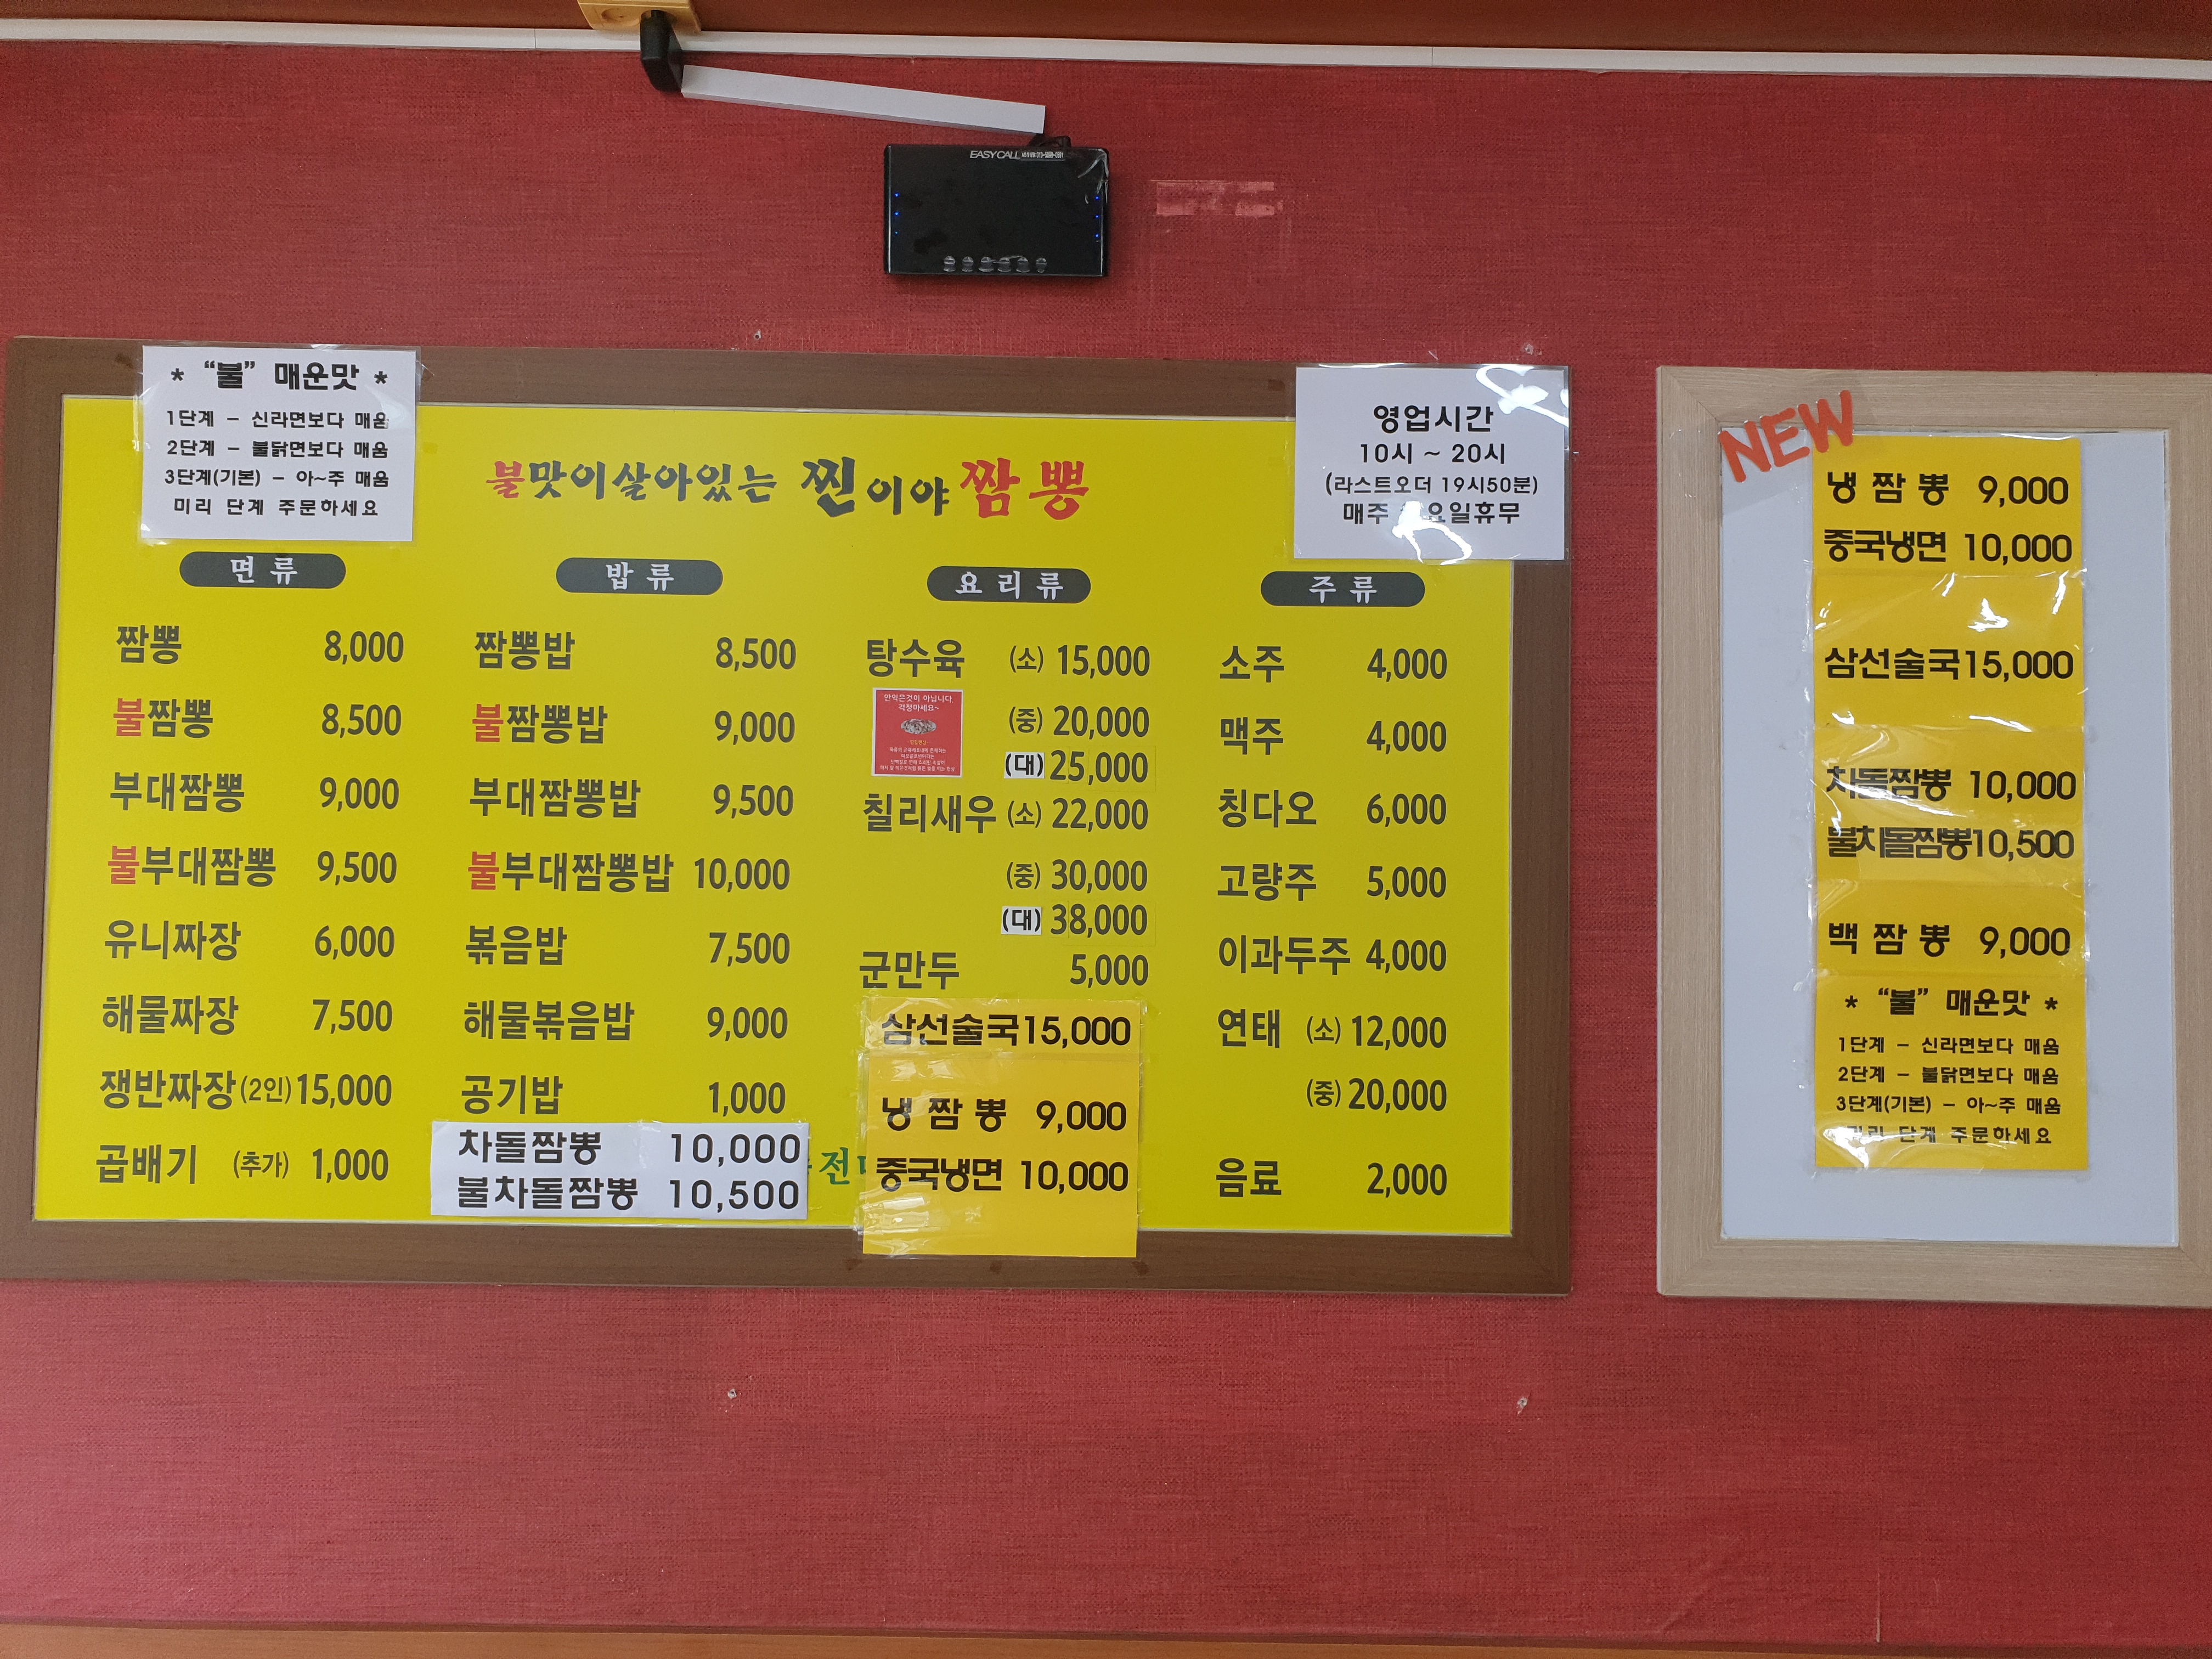 EASYCALL
* "불" 매운맛 *
1단계 - 신라면보다 매움
2단계 - 불닭면보다 매움
3단계(기본) - 아~주 매움
미리 단계 주문하세요
불맛이살아있는 찐이야 짬뽕
영업시간
10시 ~ 20시
(라스트오더 19시50분)
매주 요일휴무
면류
짬뽕 8,000
불짬뽕 8,500
부대짬뽕 9,000
불부대짬뽕 9,500
유니짜장 6,000
해물짜장 7,500
쟁반짜장(2인) 15,000
곱배기 (추가) 1,000
밥류
짬뽕밥 8,500
불짬뽕밥 9,000
부대짬뽕밥 9,500
불부대짬뽕밥 10,000
볶음밥 7,500
해물볶음밥 9,000
공기밥 1,000
차돌짬뽕 10,000
불차돌짬뽕 10,500
요리류
탕수육 (소) 15,000
안익은것이 아닙니다.
걱정마세요~
(중) 20,000
(대) 25,000
칠리새우 (소) 22,000
(중) 30,000
(대) 38,000
군만두 5,000
삼선술국 15,000
냉짬뽕 9,000
전
중국냉면 10,000
주류
소주 4,000
맥주 4,000
칭다오 6,000
고량주 5,000
이과두주 4,000
연태 (소) 12,000
(중) 20,000
음료 2,000
NEW
냉짬뽕 9,000
중국냉면 10,000
삼선술국 15,000
차돌짬뽕 10,000
불차돌짬뽕 10,500
백짬뽕 9,000
* "불" 매운맛 *
1단계 - 신라면보다 매움
2단계 - 불닭면보다 매움
3단계(기본) - 아~주 매움
미리 단계 주문하세요